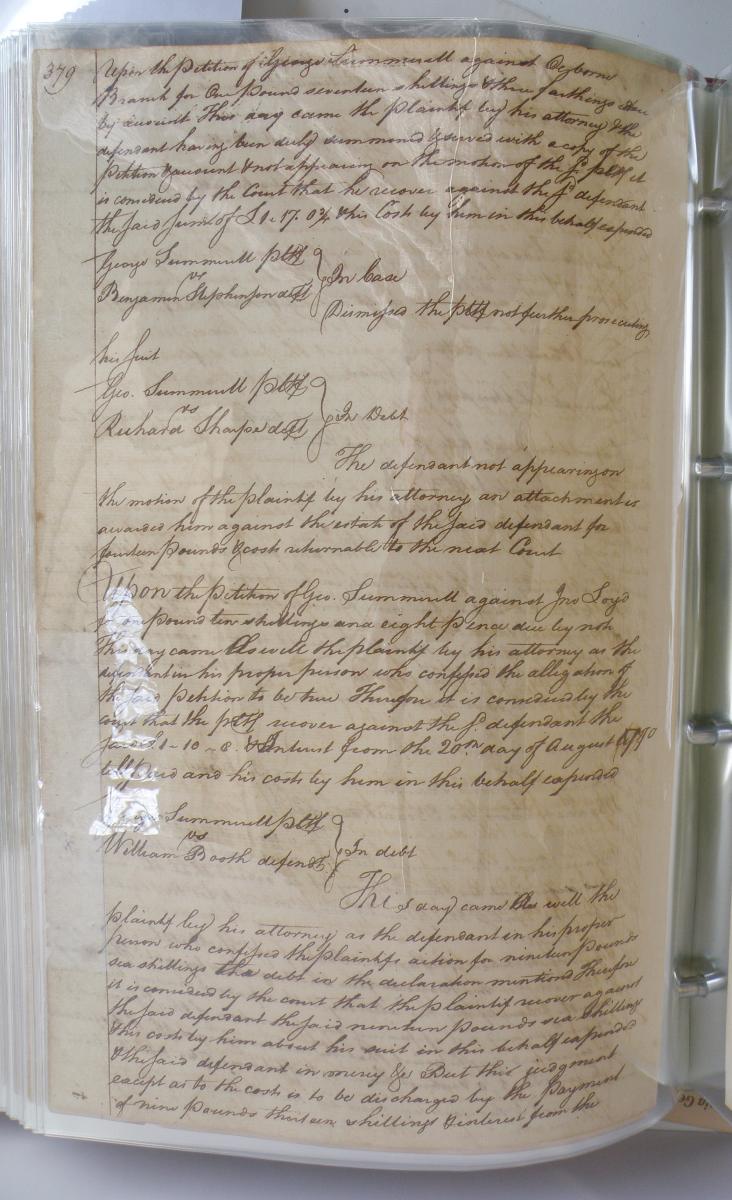 379
Upon the petition of George Summerell against Ogborne
Branch for One pound seventeen shillings & three farthings due
by account This day came the plaintif by his attorney & the
defendant having been duly summoned & served with a copy of the
petition & account & not appearing on the motion of the sd pltf it
is considered by the Court that he recover against the sd defendant
the said sum of £ 1. 17. 0¾ & his Costs by him in this behalf expended
George Summerell pltf
vs
In Case
Benjamin Stephenson deft
Dismissed the pltf not further prosecuting
his suit
Geo. Summerell pltf
vs
In Debt
Richard Sharpe deft
The defendant not appearing on
the motion of the plaintif by his attorney an attachment is
awarded him against the estate of the said defendant for
fourteen pounds & costs returnable to the next Court
Upon the petition of Geo. Summerell against Jno Loyd
for one pound ten shillings and eight pence due by note
This day came Aswell the plaintif by his attorney as the
defendant in his proper person who confessed the allegation of
the said petition to be true Therefore it is considered by the
court that the pltf recover against the sd defendant the
said £1 - 10 - 8. & Interest from the 20th day of August 1790
till paid and his costs by him in this behalf expended
George Summerell pltf
vs
In debt
William Booth defendt
This day came As well the
plaintif by his attorney as the defendant in his proper
person who confessed the plaintifs action for nineteen pounds
six shillings the debt in the declaration mentiond Therefore
it is considered by the court that the plaintif recover against
the said defendant the said nineteen pounds six shillings
& his costs by him about his suit in this behalf expended
& the said defendant in mercy &c But this judgment
except as to the costs is to be discharged by the payment
of nine pounds thirteen shillings & interest from the